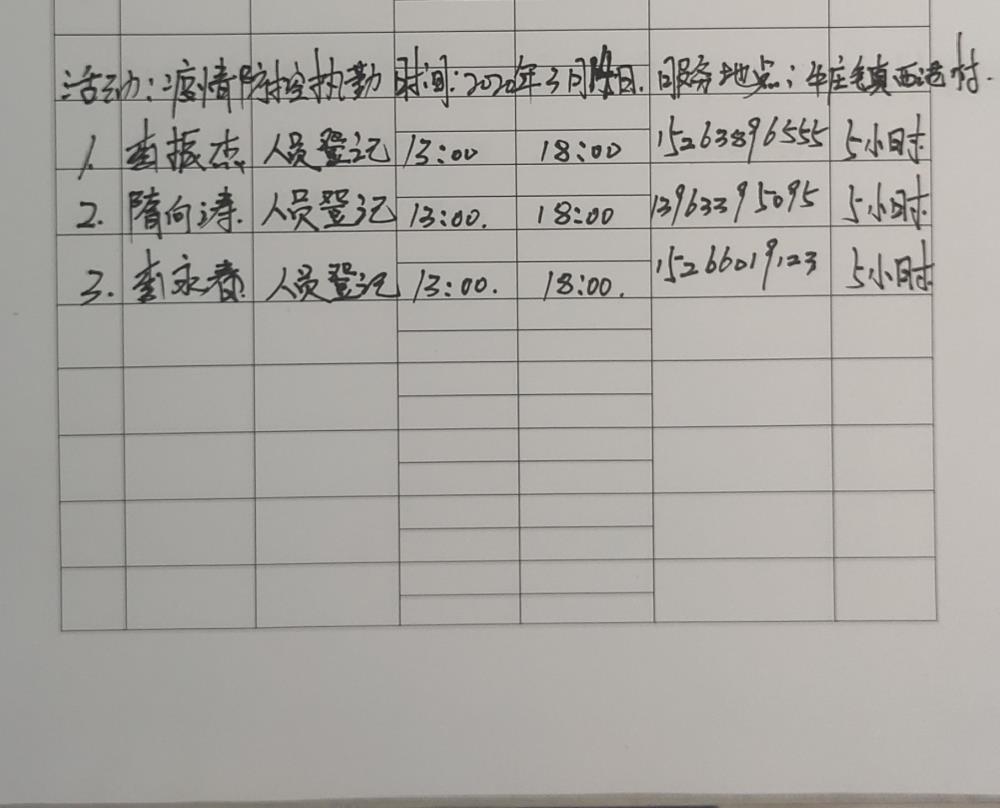 活动:疫情防控执勤 时间:2020年3月14日. 服务地点:牛庄镇西范村.
1. 李振杰 人员登记 13:00 18:00 15263896555 5小时.
2. 隋向涛. 人员登记 13:00. 18:00 13963395095 5小时.
3. 李永春. 人员登记 13:00. 18:00. 15266019123 5小时